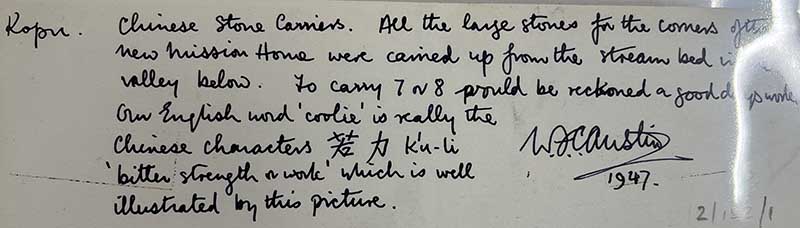 Kopu. Chinese Stone Carriers. All the large stones for the corners of the
new Mission Home were carried up from the stream bed in
valley below. To carry 7 or 8 would be reckoned a good days work.
Our English word 'coolie' is really the
Chinese characters 苦力 K'u-li
'bitter strength or work' which is well
illustrated by this picture.
W.A.C. Austin
1947.
2/152/1